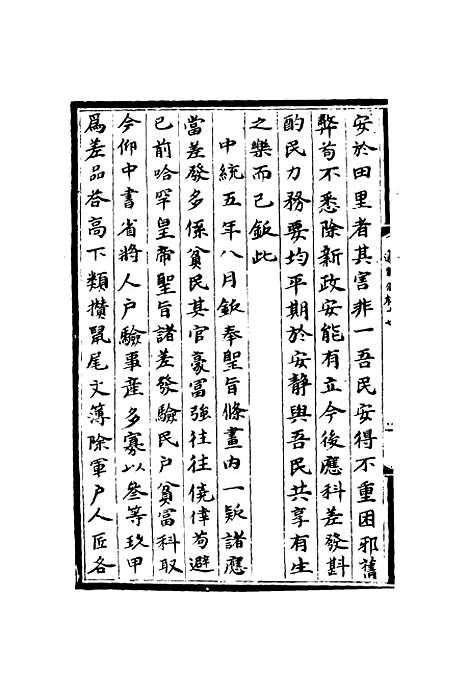 安於田里者其害非一吾民安得不重困邪舊
弊苟不悉除新政安能有立今後應科差發斟
酌民力務要均平期於安静與吾民共享有生
之樂而已欽此
中統五年八月欽奉聖旨條畫內一欵諸應
當差發多係貧民其官豪冨強往往僥倖苟避
已前哈罕皇帝聖旨諸差發驗民戶貧富科取
今仰中書省將人戶驗事產多寡以叄等玖甲
爲差品荅高下類攢鼠尾文簿除軍戶人匠各